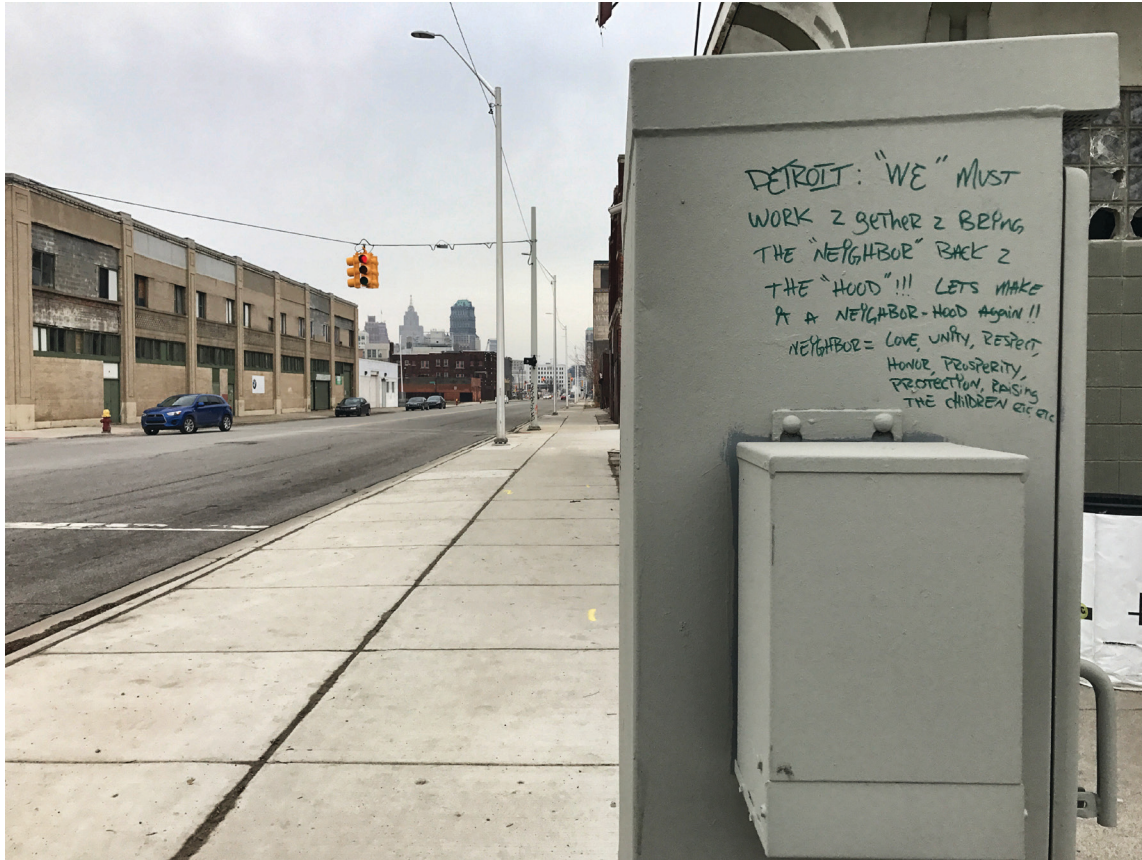 DETROIT: "WE" MUST
WORK 2 gETHER 2 BRING
THE "NEIGHBOR" BACK 2
THE "HOOD"!!! LETS MAKE
A A NEIGHBOR-HOOD AgAiN!!
NEIGHBOR= LOVE, UNITY, RESPECT,
HONOR, PROSPERITY,
PROTECTION, RAISING
THE CHILDREN ETC, ETC